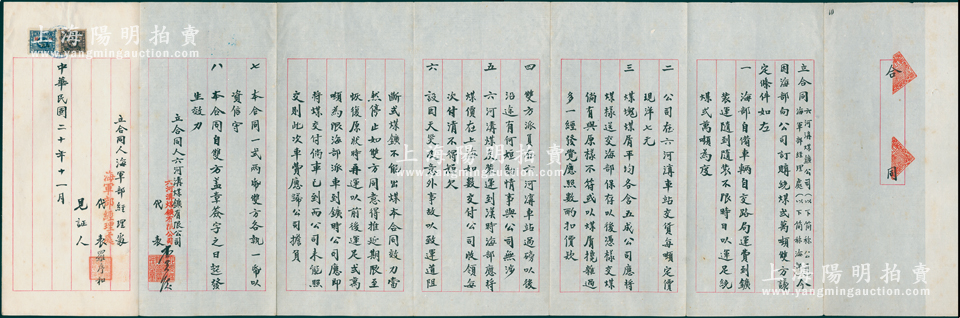 合同
立合同六河溝煤鑛公司(以下簡稱公司)海軍部經理處(以下簡稱海部)今
因海部向公司訂購統煤弍萬噸雙方議
定條件如左
一 海部自備車輛自交路局運費到鑛
裝運隨到隨裝不限時日以運足統
煤弍萬噸為度
二 公司在六河溝車站交貨每噸定價
現洋七元
三 煤塊煤屑平均各含五成公司應將
煤樣送交海部保存以後憑樣交煤
倘有與原樣不符或以煤屑攙雜過
多一經發覺應照數酌扣價款
四 雙方派員在六河溝車站過磅以後
沿途有何短耗情事與公司無涉
五 六河溝煤炭裝運到漢時海部應將
煤價在上海如數交付公司收領每
次付清不得拖欠
六 設因天災及意外事故以致運道阻
斷或煤鑛不能出煤本合同效力當
然停止如雙方同意得推延期限至
恢復原狀時再運以前後運足弍萬
噸為限海部派車到鑛時公司應即
將煤交付倘車已到而公司未能照
交則此次車費應歸公司擔負
七 本合同一式兩帋雙方各執一帋以
資信守
八 本合同自雙方蓋章簽字之日起發
生效力
立合同人六河溝煤鑛有限公司
代表
立合同人海軍部經理處
代表羅序和
見証人
中華民國二十年十一月
上海陽明拍賣
www.yangmingauction.com
上海陽明拍賣
www.yangmingauction.com
上海陽明拍賣
www.yangmingauction.com